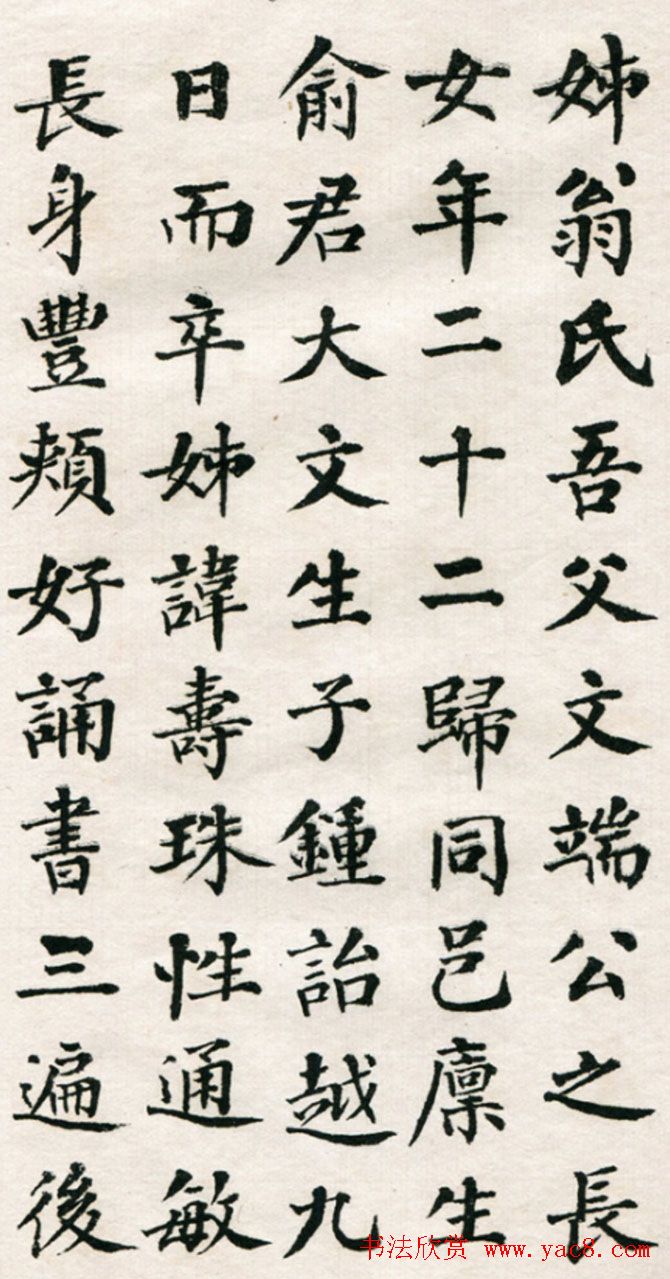 姊翁氏吾父文端公之長
女年二十二歸同邑廩生
俞君大文生子鍾詒越九
日而卒姊諱壽珠性通敏
長身豐頰好誦書三遍後
书法欣赏 www.yac8.com